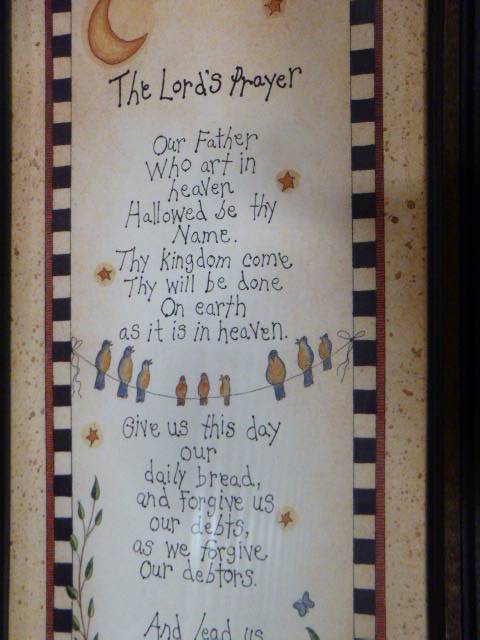 The Lord's Prayer
Our Father
Who art in
heaven
Hallowed be thy
Name.
Thy kingdom come
Thy will be done
On earth
as it is in heaven.
Give us this day
our
daily bread,
and forgive us
our debts,
as we forgive
Our debtors.
And lead us